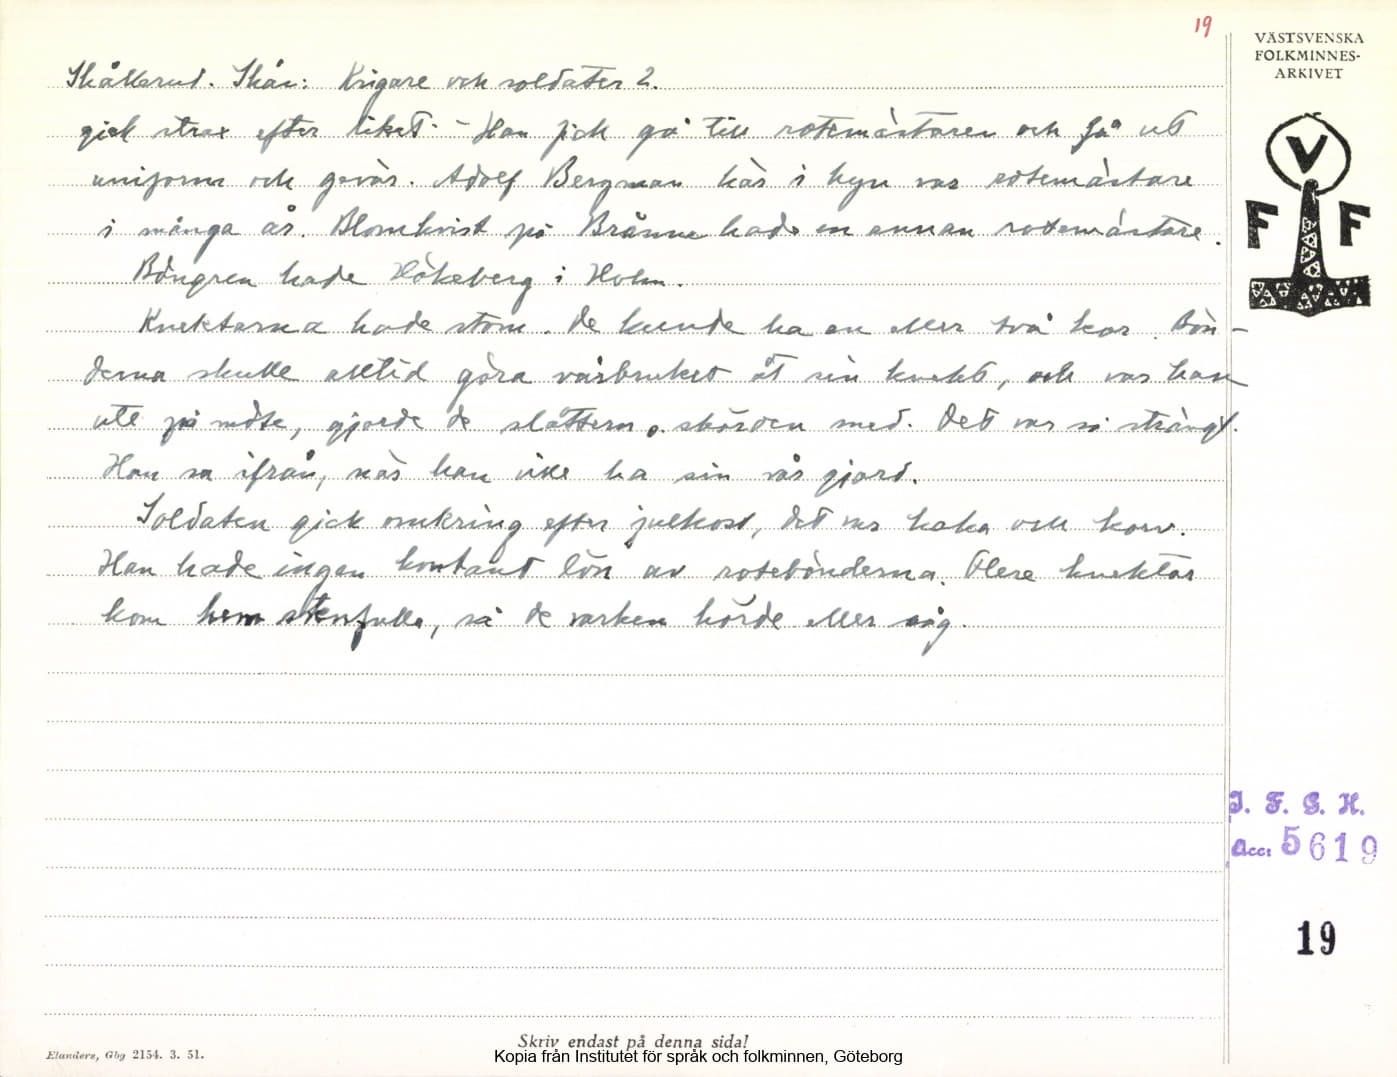 19
VÄSTSVENSKA
FOLKMINNES-
ARKIVET
V
F F
Skållerud. Skån: Krigare och soldater 2.
gick strax efter liket. - Han fick gå till rotemästaren och få ut
uniform och gevär. Adolf Bergman här i byn var rotemästare
i många år. Blomkvist på Bränna hade en annan rotemästare.
Böngren hade Hökeberg i Holm.
Knektarna hade stom. De kunde ha en eller två kor. Bön-
derna skulle alltid göra vårbruket åt sin knekt, och var han
ute på möte, gjorde de slåttern o. skörden med. Det var så strängt.
Han sa ifrån, när han ville ha sin vår gjord.
Soldaten gick omkring efter julkost, det var kaka och korv.
Han hade ingen kontant lön av rotebönderna. Flere knektar
kom hem stenfulla, så de varken hörde eller såg.
I. F. G. H.
Acc: 5619
19
Skriv endast på denna sida!
Elanders, Gbg 2154. 3. 51.
Kopia från Institutet för språk och folkminnen, Göteborg